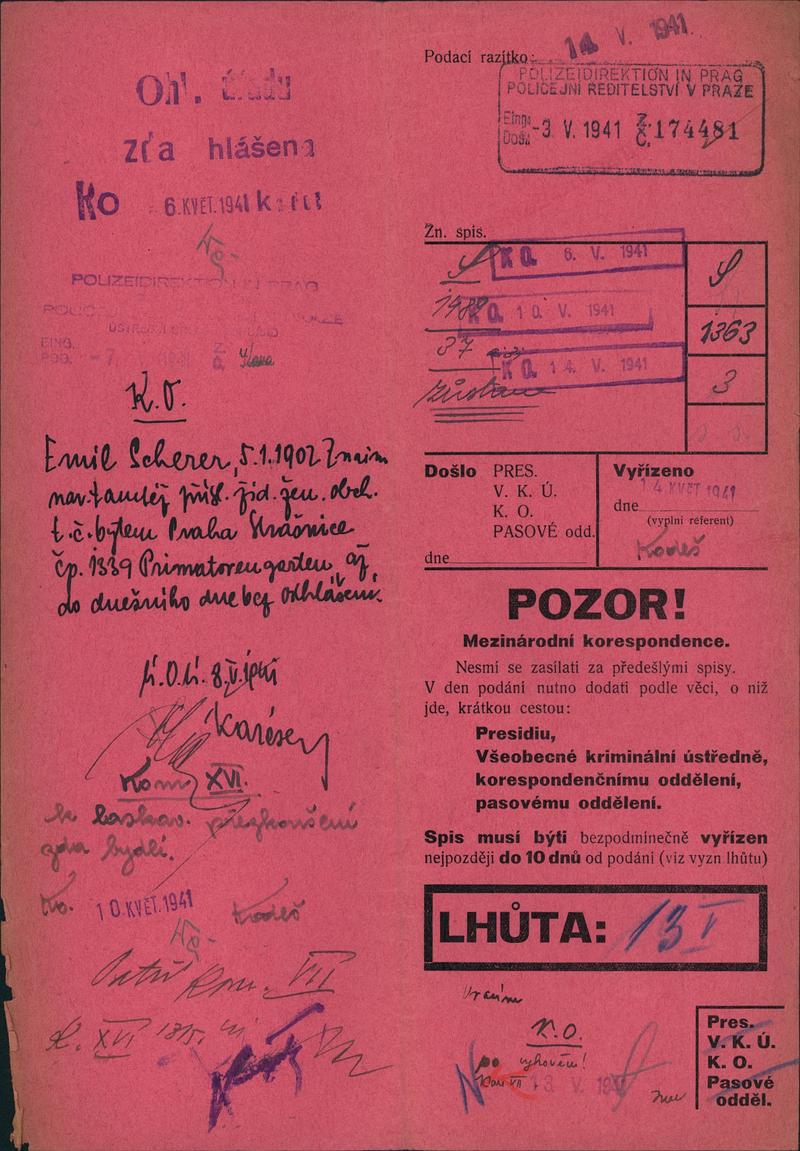 Ohl. úřadu
zda hlášena
Ko 6. KVĚT. 1941
POLIZEIDIREKTION IN PRAG
EING.
K.O.
Emil Scherer, 5.1.1902 Znaim
nar. tamtéž přísl. žid. žen. obch.
t.č. bytem Praha Strašnice
čp. 1339 Primatorengarten, až
do dnešního dne bez odhlášení.
8.V.1941
Kom XVI.
k laskav. přezkoušení
zda bydlí.
Ko. 10. KVĚT. 1941 Kodeš
Patří Kom. VII
K. XVI 13/5.
Podací razítko: 14. V. 1941
POLIZEIDIREKTION IN PRAG
POLICEJNÍ ŘEDITELSTVÍ V PRAZE
Eing. Došl. -3. V. 1941 Z. Č. 174481
Zn. spis.
S K.O. 6. V. 1941
K.O. 10. V. 1941
37
K.O. 14. V. 1941
zůstane
S
1363
3
Došlo PRES.
V. K. Ú.
K. O.
PASOVÉ odd.
dne
Vyřízeno
14. KVĚT 1941
dne
(vyplní referent)
Kodeš
POZOR!
Mezinárodní korespondence.
Nesmí se zasílati za předešlými spisy.
V den podání nutno dodati podle věci, o niž
jde, krátkou cestou:
Presidiu,
Všeobecné kriminální ústředně,
korespondenčnímu oddělení,
pasovému oddělení.
Spis musí býti bezpodmínečně vyřízen
nejpozději do 10 dnů od podání (viz vyzn lhůtu)
LHŮTA: 13 V
Vracím
K.O.
po vyhovění!
Kom VII 13. V. 1941
Pres.
V. K. Ú.
K. O.
Pasové
odděl.